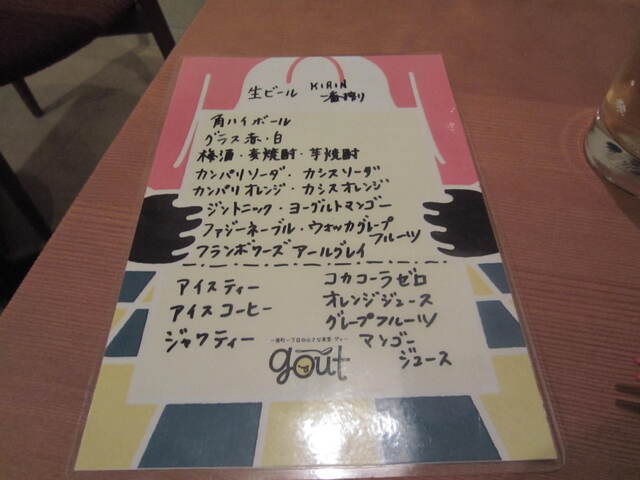 生ビール KIRIN 一番搾り
角ハイボール
グラス赤・白
梅酒・麦焼酎・芋焼酎
カンパリソーダ・カシスソーダ
カンパリオレンジ・カシスオレンジ
ジントニック・ヨーグルトマンゴー
ファジーネーブル・ウォッカグレープフルーツ
フランボワーズアールグレイ
アイスティー
アイスコーヒー
ジャワティー
コカコーラゼロ
オレンジジュース
グレープフルーツ
マンゴー
ジュース
goût